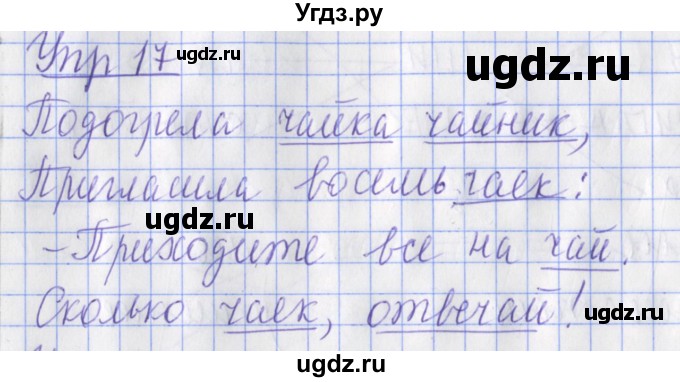 Угдз.ру
Упр 17
ugdz.ru
ugdz.ru
Подогрела чайка чайник,
ugdz.ru
Пригласила восемь чаек:
ugdz.ru
-Приходите все на чай.
Сколько чаек, отвечай!
ugdz.ru
ugdz.ru
ugdz.ru